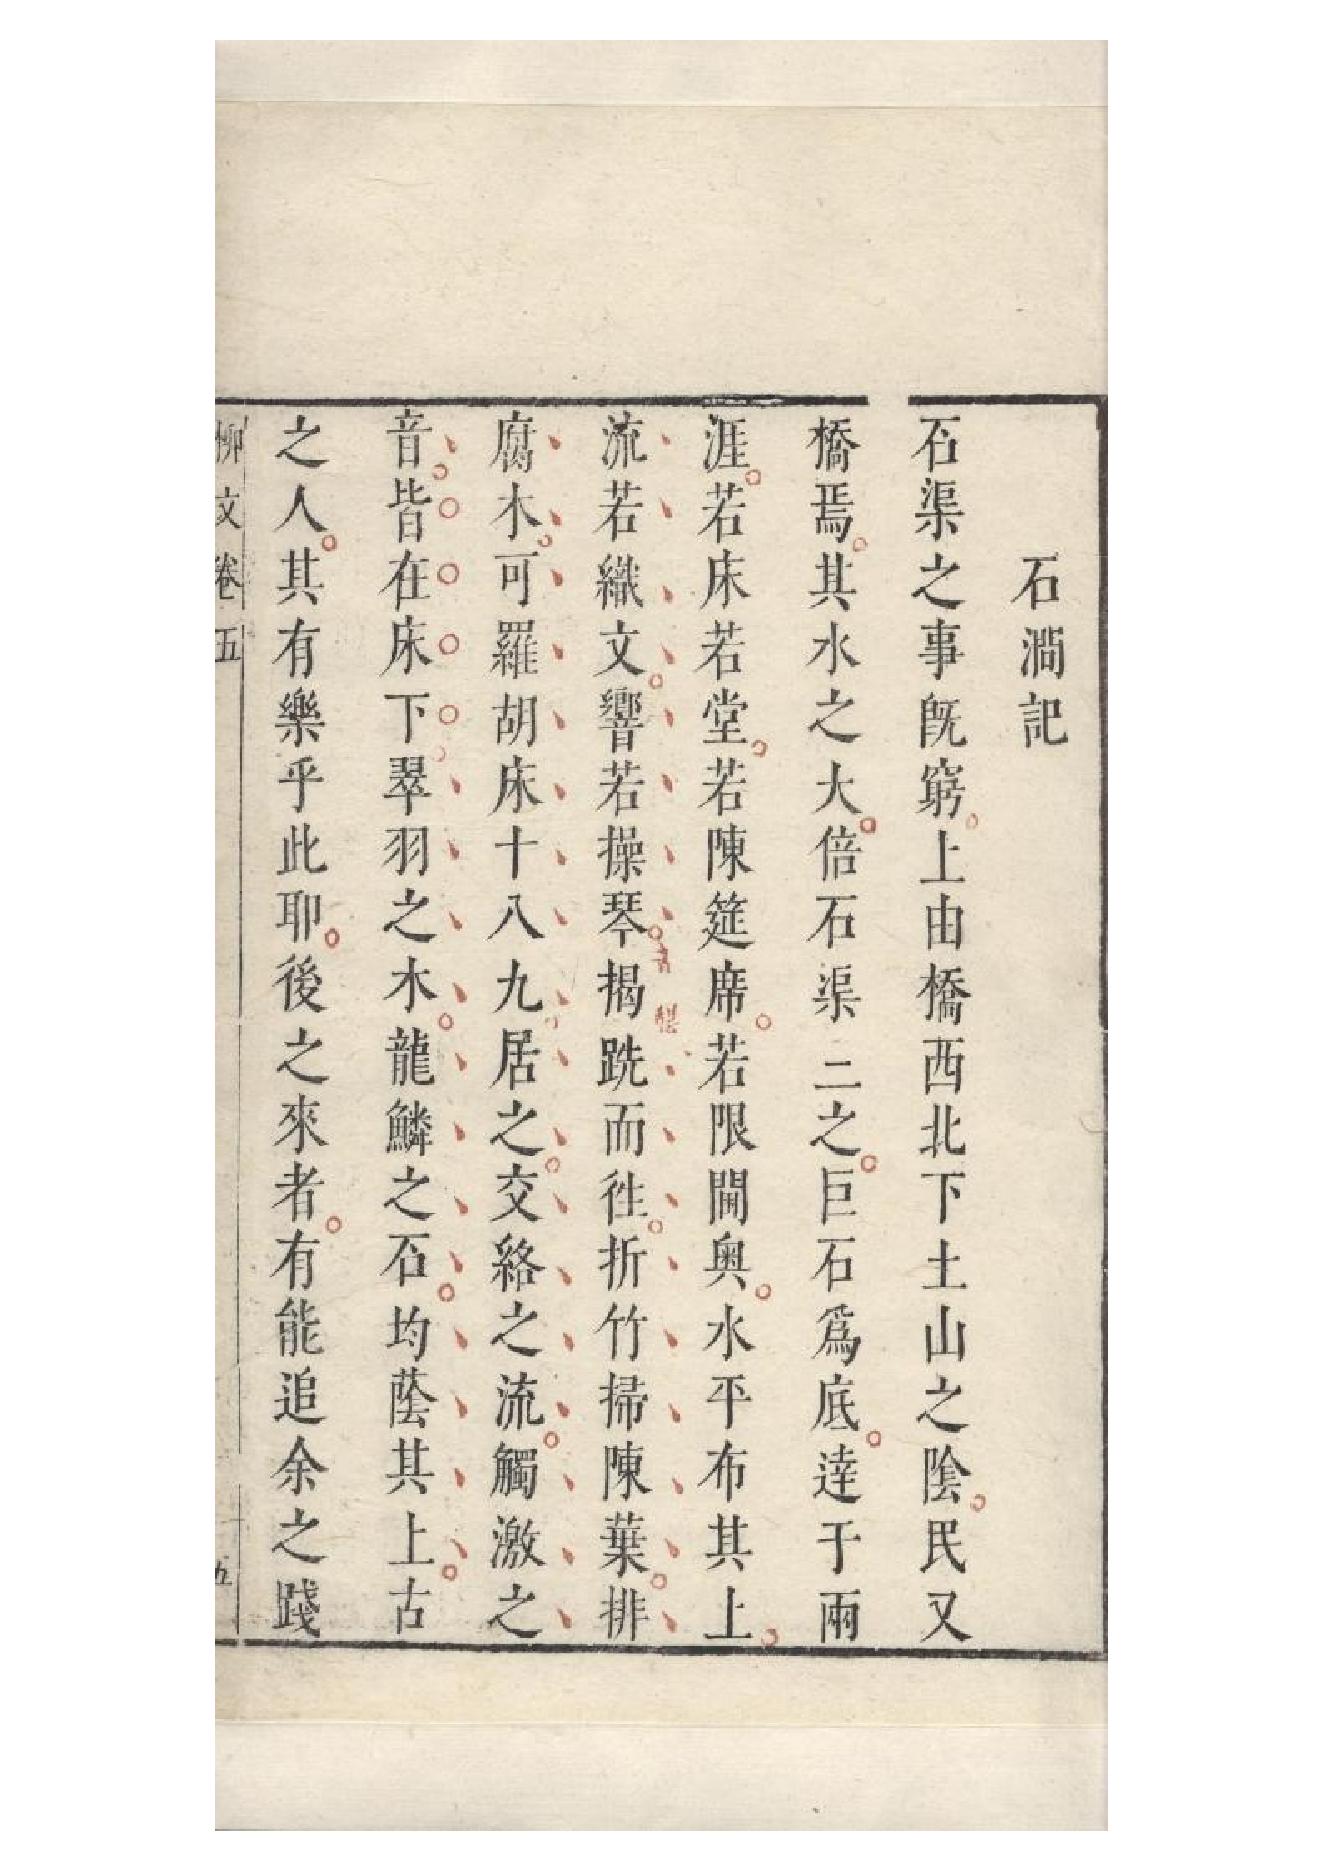 石澗記
石渠之事既窮上由橋西北下土山之陰民又
橋焉其水之大倍石渠二之巨石爲底達于兩
涯若床若堂若陳筵席若限閫奥水平布其上
流若織文響若操琴揭跣而徃折竹掃陳葉排
腐木可羅胡床十八九居之交絡之流觸激之
音皆在床下翠羽之木龍鱗之石均蔭其上古
之人其有樂乎此耶後之來者有能追余之踐
柳文卷五
五